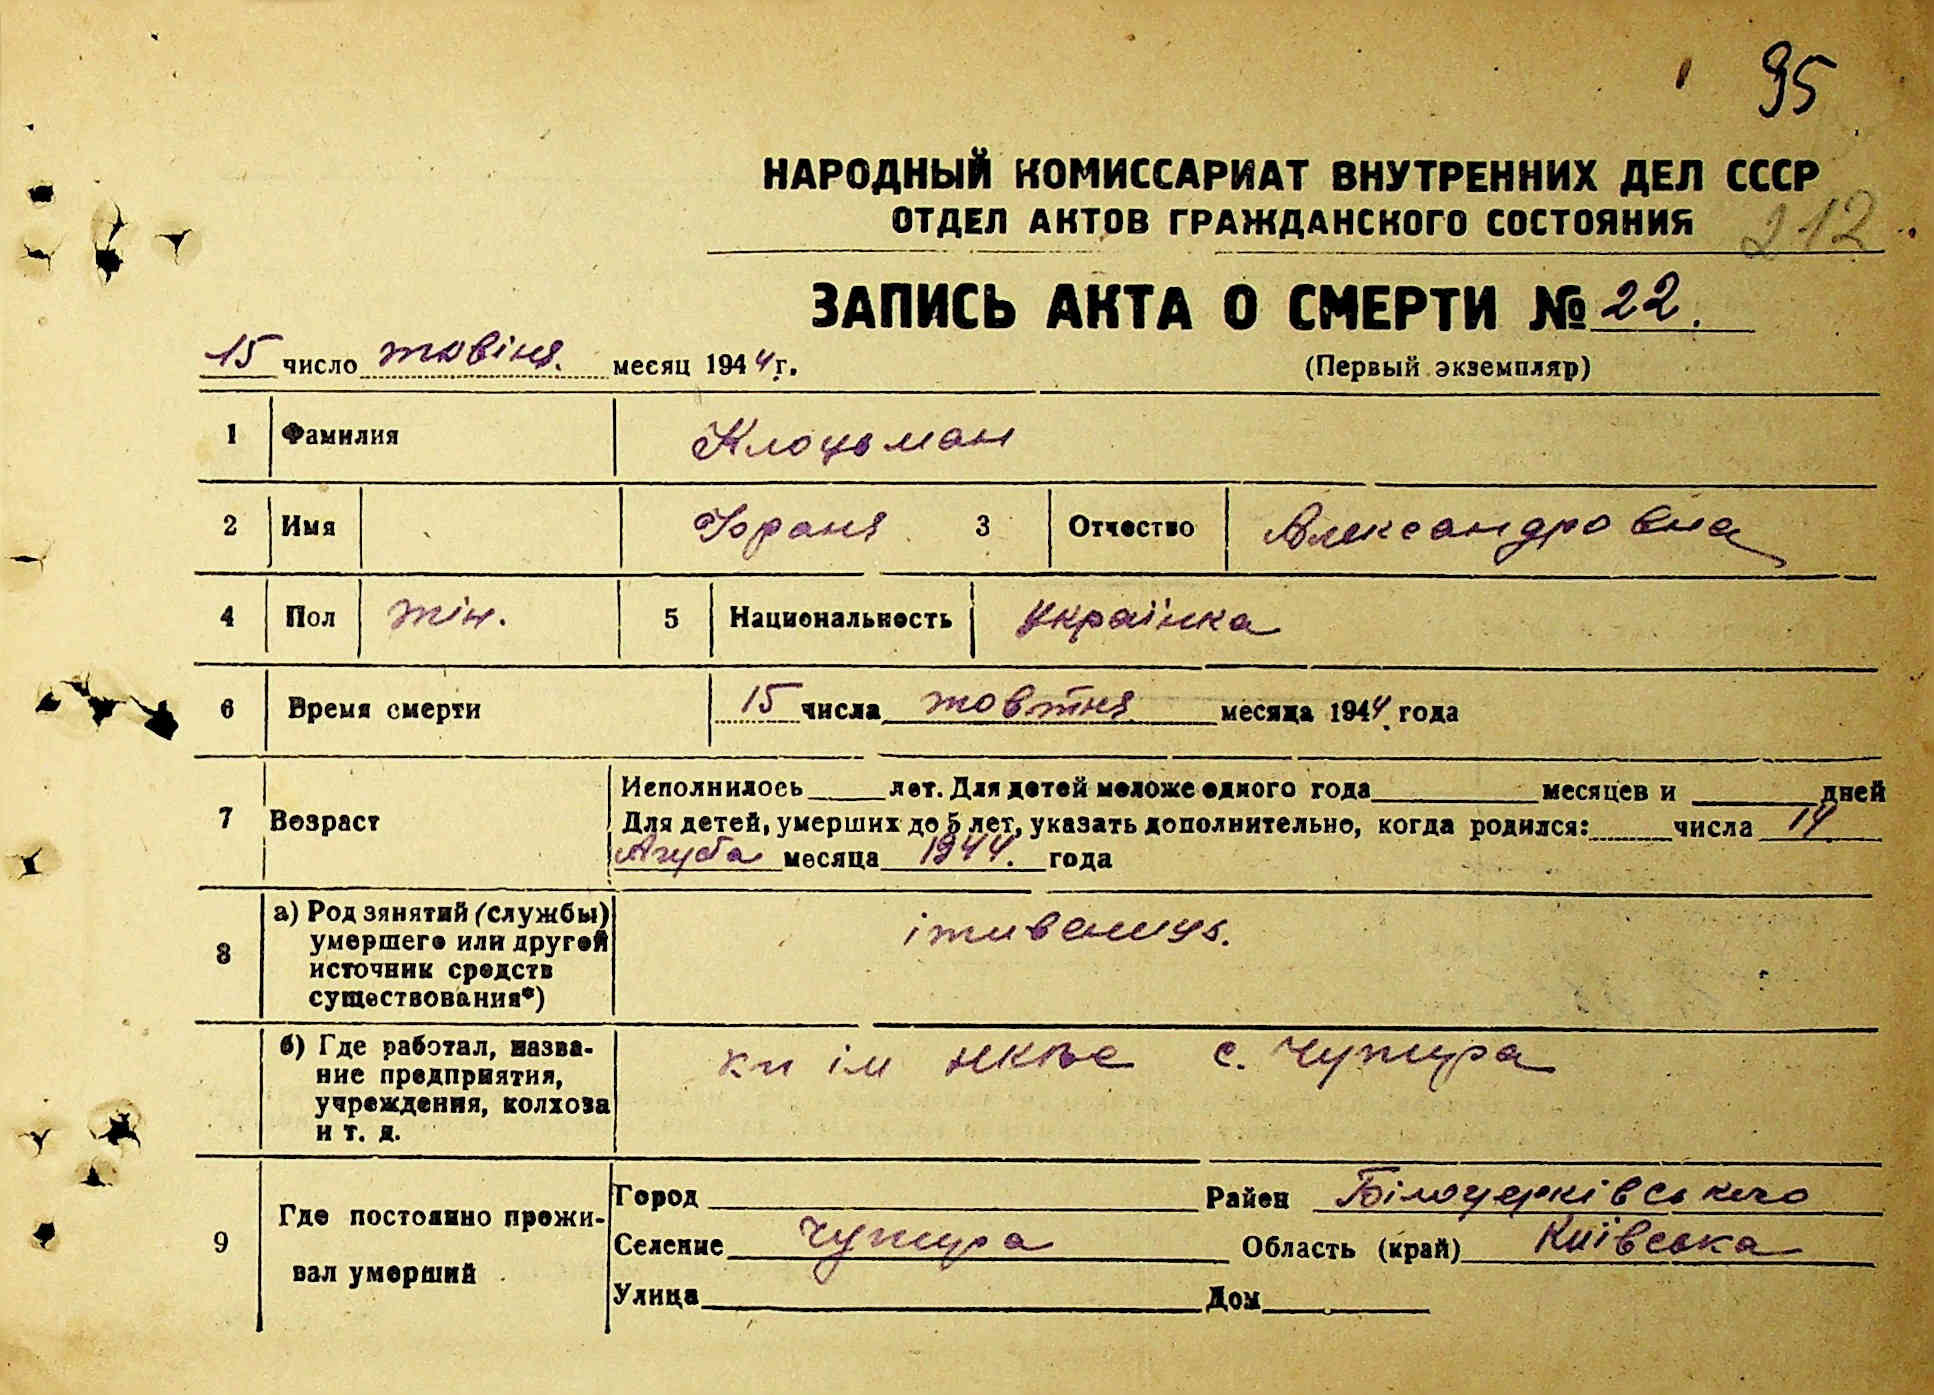 95
НАРОДНЫЙ КОМИССАРИАТ ВНУТРЕННИХ ДЕЛ СССР
ОТДЕЛ АКТОВ ГРАЖДАНСКОГО СОСТОЯНИЯ
212
ЗАПИСЬ АКТА О СМЕРТИ № 22.
15 число месяц 1944 г. (Первый экземпляр)
1 Фамилия Клоцьман
2 Имя Франя 3 Отчество Александровна
4 Пол жін. 5 Национальность українка
6 Время смерти 15 числа жовтня месяца 1944 года
7 Возраст Исполнилось лет. Для детей моложе одного года месяцев и дней
Для детей, умерших до 5 лет, указать дополнительно, когда родился: числа 14
месяца 1944. года
8 а) Род занятий (службы)
умершего или другой
источник средств
существования*)
б) Где работал, назва-
ние предприятия,
учреждения, колхоза
и т. д.
ім с.
9 Где постоянно прожи-
вал умерший
Город Район Білоцерківського
Селение Область (край) Київська
Улица Дом